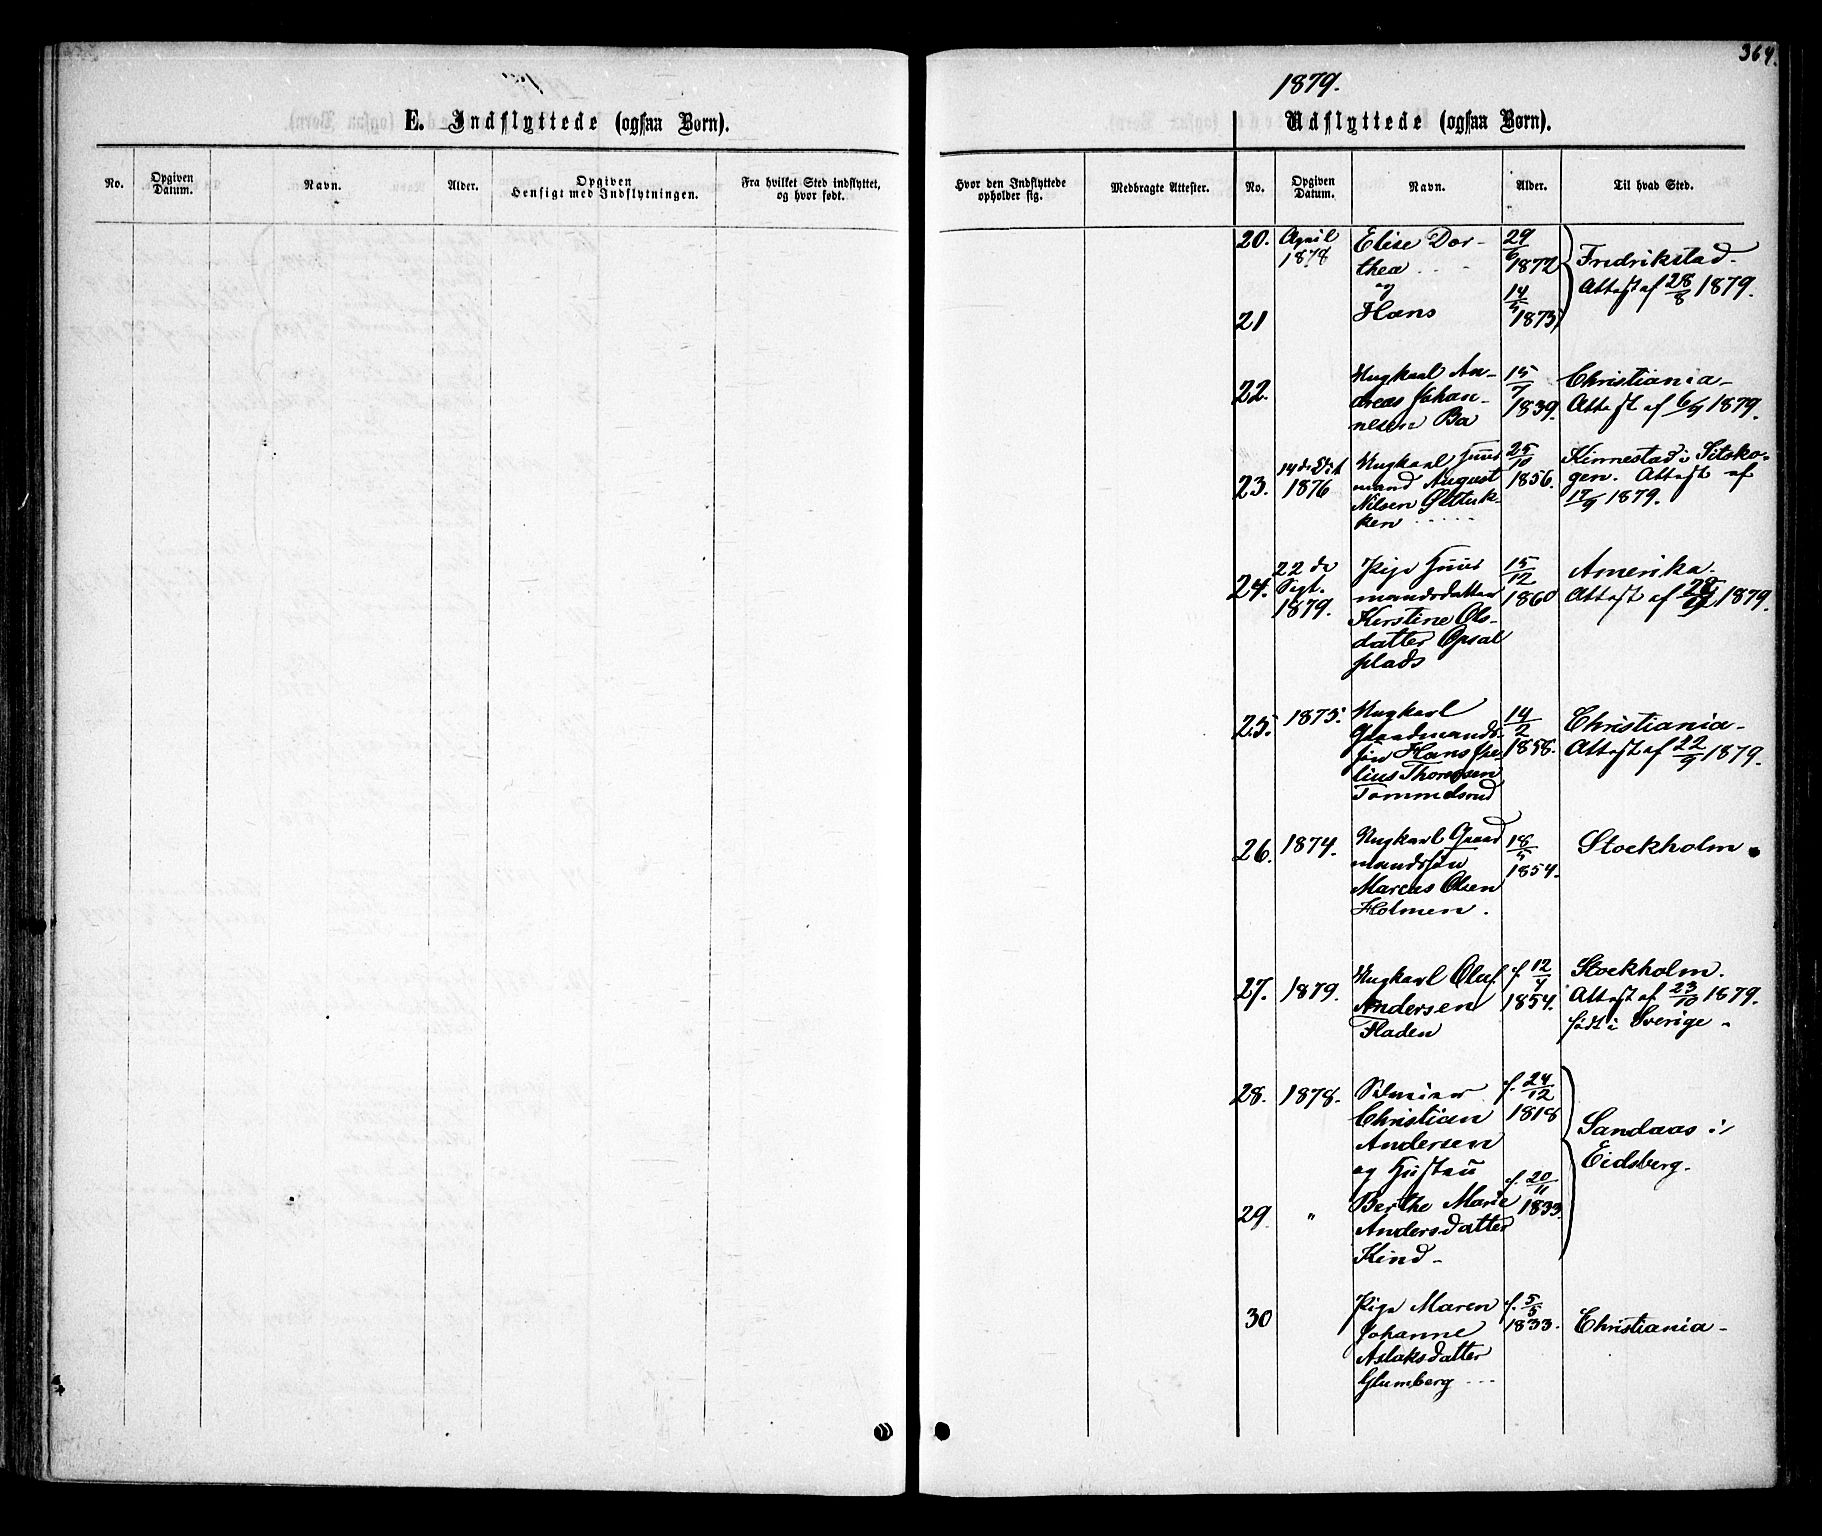 364.
1879.
E. Indflyttede (ogsaa Børn).
Udflyttede (ogsaa Børn).
No.
Opgiven Datum.
Navn.
Alder.
Opgiven Hensigt med Indflytningen.
Fra hvilket Sted indflyttet, og hvor født.
Hvor den Indflyttede opholder sig.
Medbragte Attester.
No.
Opgiven Datum.
Navn.
Alder.
Til hvad Sted.
20. April Elise Dor- 29/6
1878 thea 1872 Fredrikstad.
og 14/5 Attest af 28/8 1879.
21 Hans 1875
Ungkarl An- 15/7 Christiania
22. dreas Johan- 1839. Attest af 6/9 1879.
nesen Ba
14de Oct Ungkarl Huus 25/10 Kinnestad i Sitsko-
23. 1876 mand August 1856. gen. Attest af
Nilsen 17/9 1879.
ken
22de Pige Huus 15/12 Amerika.
24. Sept. mandsdatter 1860 Attest af 1879.
1879. Kirstine Ols-
datter Opsal
plads
25. 1875. Ungkarl 14/2 Christiania
Gaardmands- 1858. Attest af 22/9 1879.
søn Hans
lius Thoresen
Tommelsrud
26. 1874. Ungkarl Gaard 18/5 Stockholm
mandssøn 1854.
Marcus Olsen
Holmen.
27. 1879. Ungkarl Oluf f. 12/7 Stockholm.
Andersen 1854. Attest af 23/10 1879.
Fladen født i Sverige
28. 1878. f. 24/12
Christian 1818 Sandaas i
Andersen Eidsberg.
og Hustru f. 20/11
29 " Berthe Marie 1833.
Andersdatter
Kind
30 Pige Maren f. 5/5
Johanne 1833. Christiania
Aslaksdatter
Glumberg